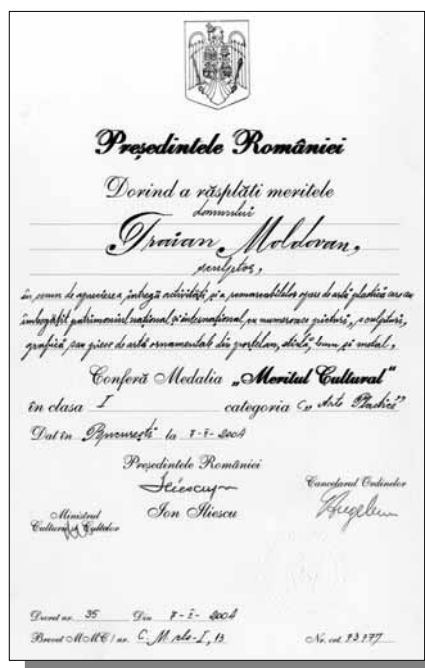 Președintele României
Dorind a răsplăti meritele
domnului
Traian Moldovan,
sculptor,
în semn de apreciere a întregii activități și a remarcabilelor opere de artă plastică care au
îmbogățit patrimoniul național și internațional, cu numeroase picturi, sculpturi,
grafică sau piese de artă ornamentale din porțelan, sticlă, lemn și metal,
Conferă Medalia „Meritul Cultural”
în clasa I categoria C „Arte Plastice”
Dat în București la 7-I-2004
Președintele României
Ion Iliescu
Cancelarul Ordinelor
Ministrul
Culturii și Cultelor
Decret nr. 35 Din 7-I-2004
Brevet MMC / nr. C.M cls-I, 13
No. crt. 13.177